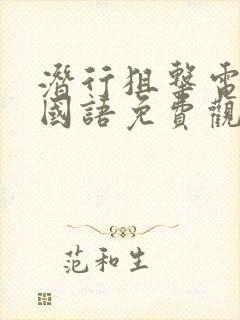 潛行狙擊電
國語免費觀
范和生